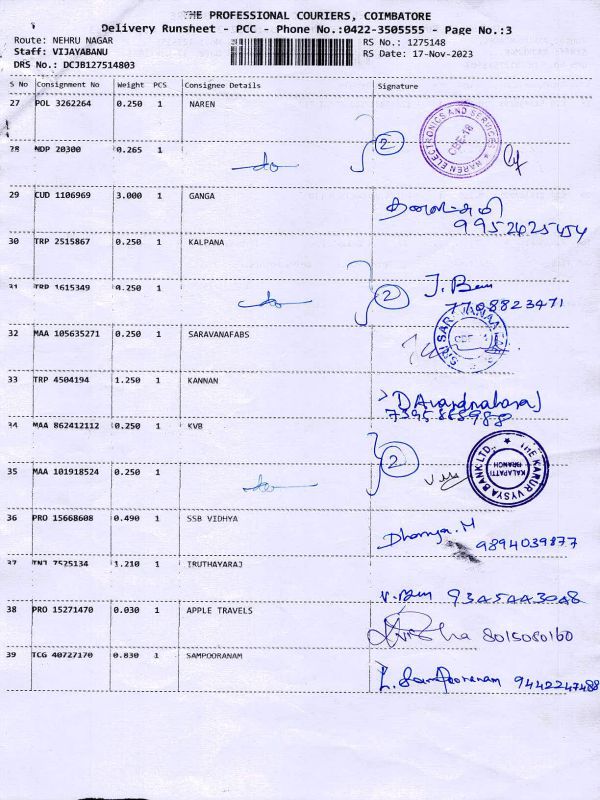 THE PROFESSIONAL COURIERS, COIMBATORE
Delivery Runsheet - PCC - Phone No.:0422-3505555 - Page No.:3
Route: NEHRU NAGAR RS No.: 1275148
Staff: VIJAYABANU RS Date: 17-Nov-2023
DRS No.: DCJB127514803
S No Consignment No Weight PCS Consignee Details Signature
27 POL 3262264 0.250 1 NAREN
NAREN ELECTRONICS AND SERVICES CBE-18
28 NDP 20300 0.265 1 do 2
29 CUD 1106969 3.000 1 GANGA
9952425454
30 TRP 2515867 0.250 1 KALPANA
31 TRP 1615349 0.250 1 do 2 J. Ben
7708823471
32 MAA 105635271 0.250 1 SARAVANAFABS
33 TRP 4504194 1.250 1 KANNAN
34 MAA 862412112 0.250 1 KVB
THE KARUR VYSYA BANK LTD., KALAPATTI BRANCH
35 MAA 101918524 0.250 1 do 2
36 PRO 15668608 0.490 1 SSB VIDHYA Dhanya.M
9894039877
37 TNJ 7525134 1.210 1 IRUTHAYARAJ
38 PRO 15271470 0.030 1 APPLE TRAVELS
8015080160
39 TCG 40727170 0.830 1 SAMPOORANAM
L. Sampooranam 9442247488